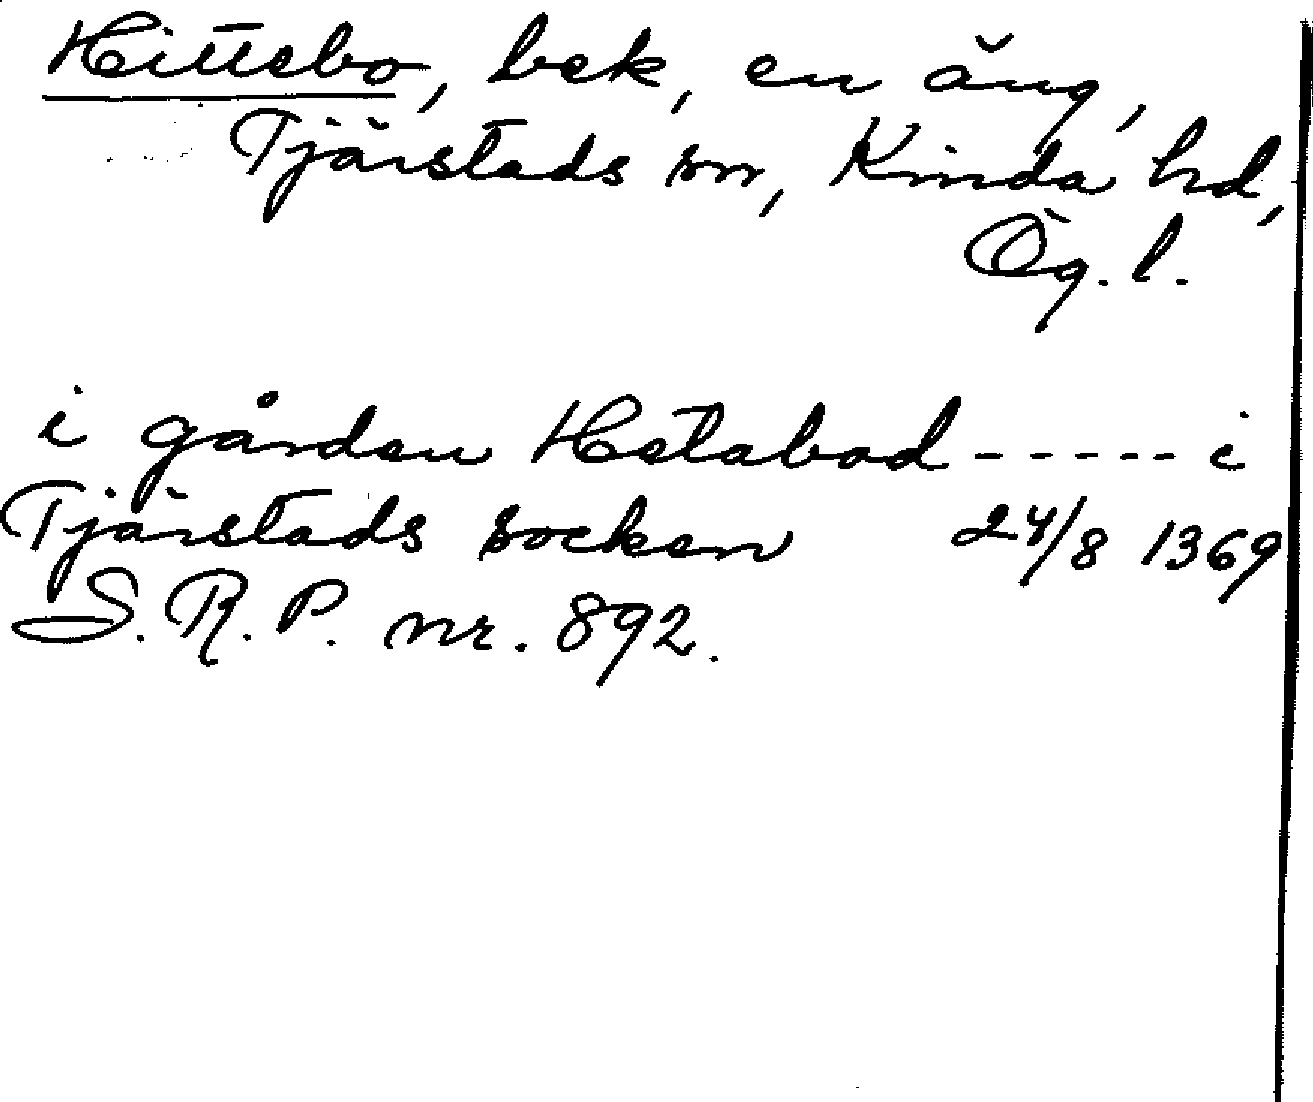 Hittebo, bek, en äng,
Tjärstads sn, Kinda hd,
Ög. l.
i gården Hetabod ----- i
Tjärstads socken 24/8 1369
S. R. P. nr. 892.